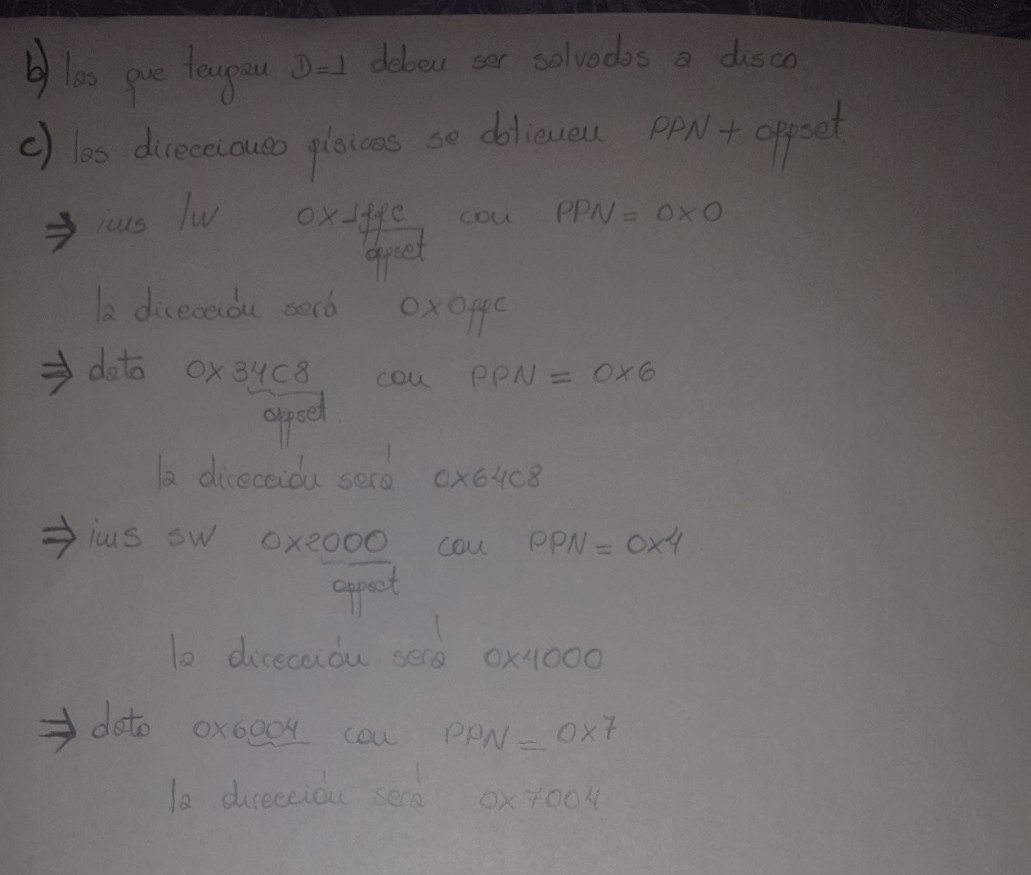 b) las que tengan D=1 deben ser salvados a disco
c) las direcciones físicas se obtienen PPN + offset.
⇒ ins lw 0x1ffc con PPN = 0x0
offset
la dirección será 0x0ffc
⇒ dato 0x34C8 con PPN = 0x6
offset
la dirección será 0x64C8
⇒ ins sw 0x2000 con PPN = 0x4
offset
la dirección será 0x4000
⇒ dato 0x6004 con PPN = 0x7
la dirección será 0x7004